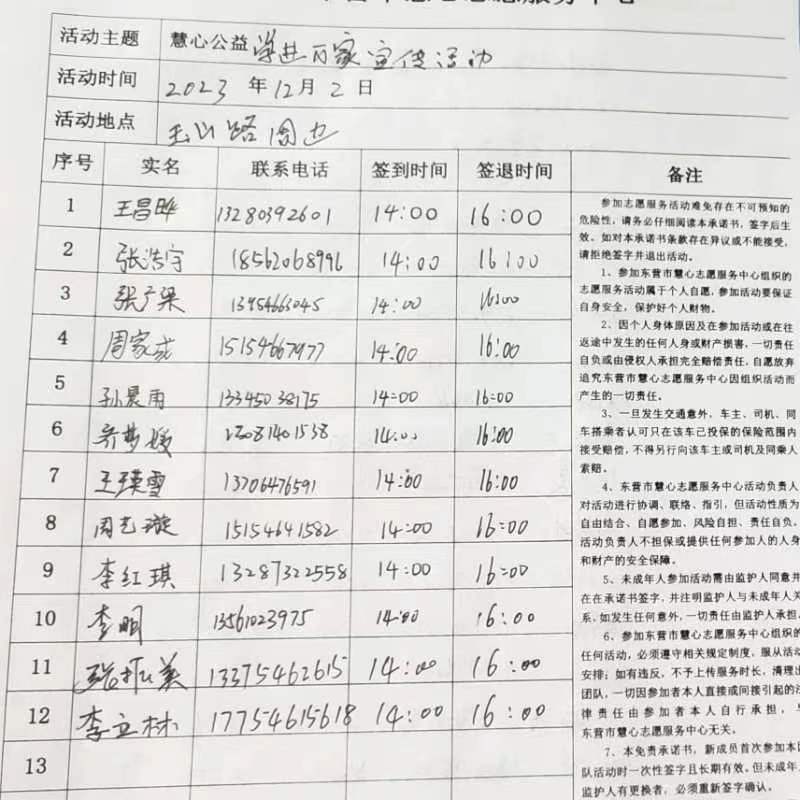 活动主题 慧心公益 学进万家宣传活动
活动时间 2023 年 12 月 2 日
活动地点 玉山路周边
序号 实名 联系电话 签到时间 签退时间 备注
1 王昌晔 13280392601 14:00 16:00
2 张浩宇 18562068996 14:00 16:00
3 张广梁 13954663045 14:00 16:00
4 周家成 15154667977 14:00 16:00
5 孙晨雨 13345038175 14:00 16:00
6 14:00 16:00
7 王瑛雪 13706476591 14:00 16:00
8 周艺璇 15154641582 14:00 16:00
9 李红琪 13287322558 14:00 16:00
10 李明 13561023975 14:00 16:00
11 13375462615 14:00 16:00
12 李立林 17754615618 14:00 16:00
13
参加志愿服务活动难免存在不可预知的
危险性，请务必仔细阅读本承诺书，签字后生
效。如对本承诺书条款存在异议或不能接受，
请拒绝签字并退出活动。
1、参加东营市慧心志愿服务中心组织的
志愿服务活动属于个人自愿，参加活动要保证
自身安全，保护好个人财物。
2、因个人身体原因及在参加活动或在往
返途中发生的任何人身或财产损害，一切责任
自负或由侵权人承担完全赔偿责任，自愿放弃
追究东营市慧心志愿服务中心因组织活动而
产生的一切责任。
3、一旦发生交通意外，车主、司机、同
车搭乘者认可只在该车已投保的保险范围内
接受赔偿，不得另行向该车主或司机及同乘人
索赔。
4、东营市慧心志愿服务中心活动负责人
对活动进行协调、联络、指引，但活动性质为
自由结合、自愿参加、风险自担、责任自负。
活动负责人不担保或提供任何参加人的人身
和财产的安全保障。
5、未成年人参加活动需由监护人同意并
在在承诺书签字，并注明监护人与未成年人关
系，如发生任何意外，一切责任由监护人承担。
6、参加东营市慧心志愿服务中心组织的
任何活动，必须遵守相关规定制度，服从活动
安排；如有违反，不予上传服务时长，清理出
团队，一切因参加者本人直接或间接引起的法
律责任由参加者本人自行承担，与
东营市慧心志愿服务中心无关。
7、本免责承诺书，新成员首次参加本团
队活动时一次性签字且长期有效。但未成年人
监护人有更换者，必须重新签字确认。